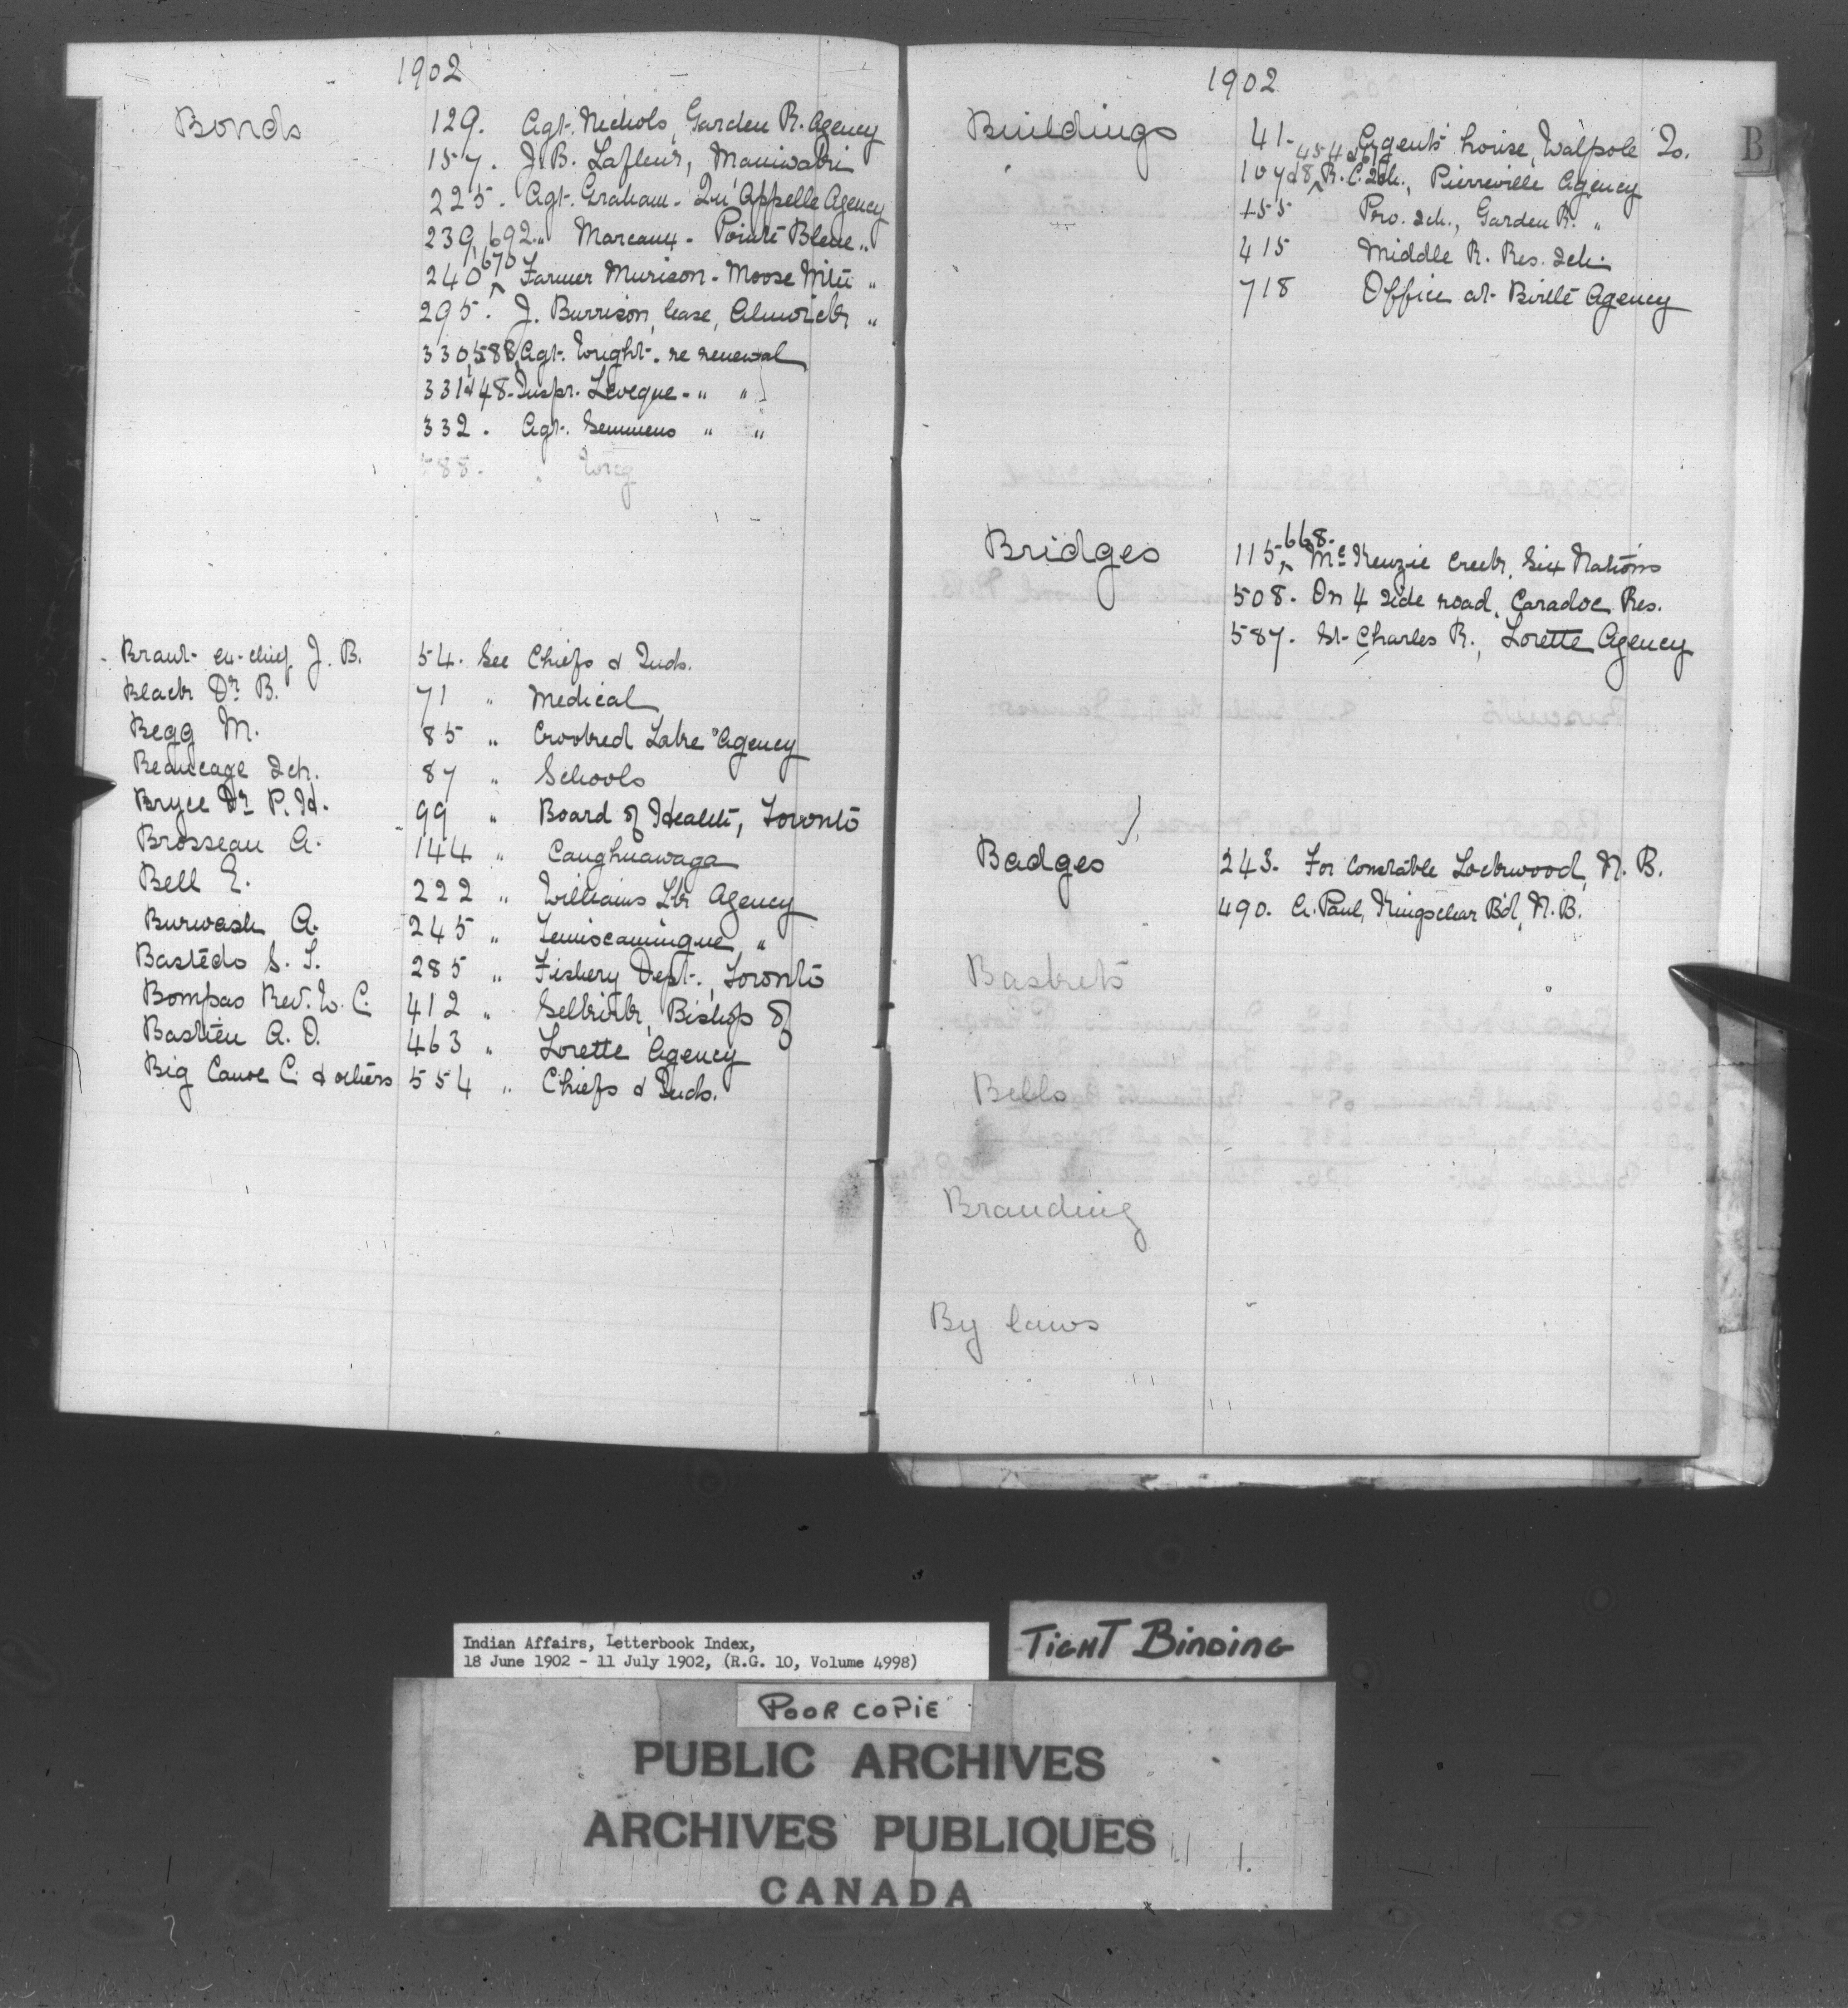 1902
Bonds
129. Agt. Nichols, Garden R. Agency
157. J. B. Lafleur, Maniwaki
225. Agt. Graham - Qu'Appelle Agency
239, 692 „ Marcoux - Pointe Bleue „
240 ^ 670 Farmer Murison - Moose Mtn „
295. J. Burrison, lease, Alnwick „
330, 588, Agt. Wright - re renewal
331 & 448 - Inspr. Leveque - „ „
332. Agt. Semmens „ „
588. „ Wrig
Brant ex-chief J. B. 54. See Chiefs & Inds.
Black Dr. B. 71 „ Medical
Begg M. 85 „ Crooked Lake Agency
Beaucage Sch. 87 „ Schools
Bryce Dr. P. H. 99 „ Board of Health, Toronto
Brosseau A. 144 „ Caughnawaga
Bell E. 222 „ Williams Lk Agency
Burwash A. 245 „ Temiscamingue „
Bastedo S. T. 285 „ Fishery Dept., Toronto
Bompas Rev. W. C. 412 „ Selkirk, Bishop of
Bastien A. O. 463 „ Lorette Agency
Big Canoe C. & others 554 „ Chiefs & Inds.
1902
B
Buildings
41 - Agent's house, Walpole Is.
107 & 8 ^ 454 & 617 R. C. Sch., Pierreville Agency
155 Pro. Sch., Garden R. „
415 Middle R. Res. Sch.
718 Office at Birtle Agency
Bridges
115 ^ 668. McKenzie Creek, Six Nations
508. On 4 side road, Caradoc Res.
587. St. Charles R., Lorette Agency
Badges
243. For Constable Lockwood, N. B.
490. A. Paul, Kingsclear Bd, N. B.
Baskets
Bells
Branding
By laws
Indian Affairs, Letterbook Index,
18 June 1902 - 11 July 1902, (R.G. 10, Volume 4998)
TIGHT BINDING
POOR COPIE
PUBLIC ARCHIVES
ARCHIVES PUBLIQUES
CANADA